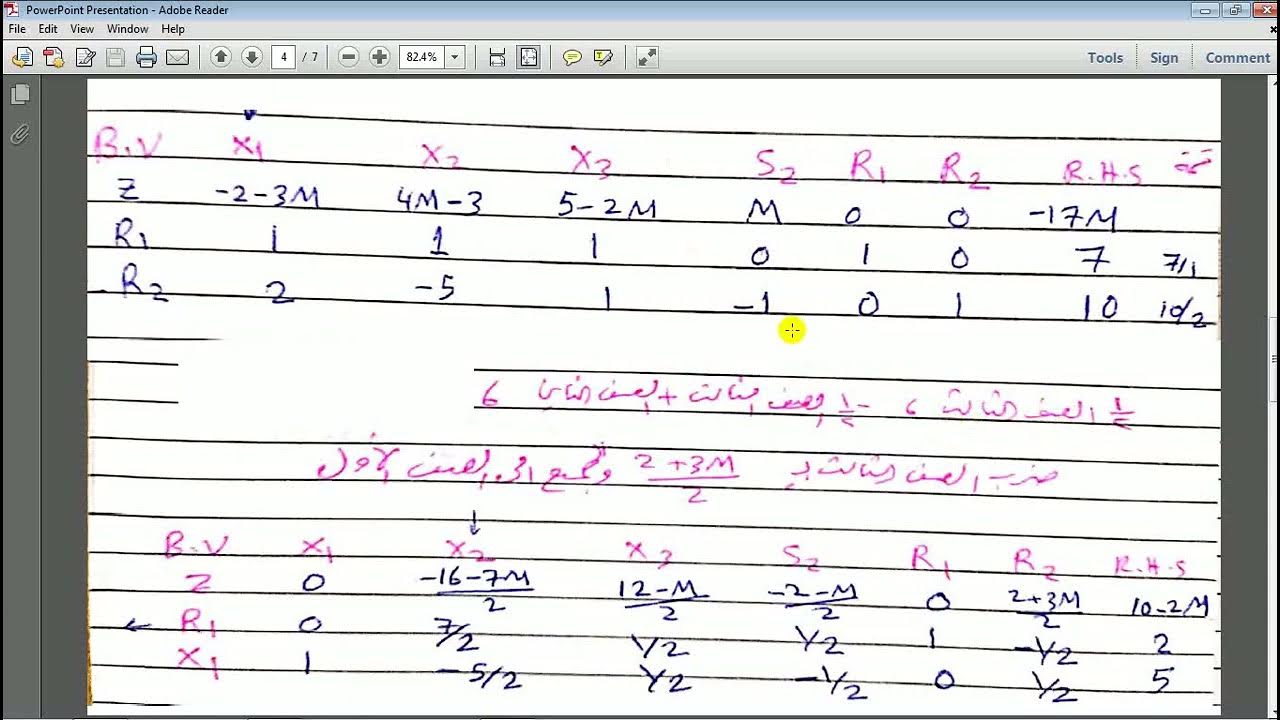 PowerPoint Presentation - Adobe Reader
File Edit View Window Help
4 / 7 82.4% Tools Sign Comment
B.V X1 X2 X3 S2 R1 R2 R.H.S
Z -2-3M 4M-3 5-2M M 0 0 -17M
R1 1 1 1 0 1 0 7 7/1
R2 2 -5 1 -1 0 1 10 10/2
1/2 الصف الثالث 6 -1/2 الصف الثالث + الصف الثاني 6
ضرب الصف الثالث بـ (2+3M)/2 وتجمع الى الصف الأول
B.V X1 X2 X3 S2 R1 R2 R.H.S
Z 0 (-16-7M)/2 (12-M)/2 (-2-M)/2 0 (2+3M)/2 10-2M
← R1 0 7/2 1/2 1/2 1 -1/2 2
X1 1 -5/2 1/2 -1/2 0 1/2 5